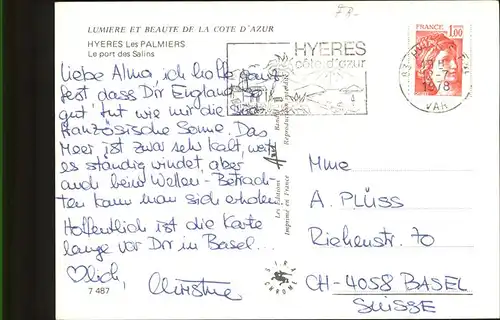 F8.-
LUMIERE ET BEAUTE DE LA COTE D'AZUR
HYERES Les PALMIERS
Le port des Salins
HYERES
côte d'azur
FRANCE
1,00
1978
VAR
Liebe Alma, ich hoffe ganz
fest dass Dir England so
gut tut wie mir die süd-
französische Sonne. Das
Meer ist zwar sehr kalt, weil
es ständig windet, aber
auch beim Wellen-Betrach-
ten kann man sich erholen.
Hoffentlich ist die Karte
lange vor Dir in Basel...
♡lich, Christine
7 487
Les Editions
Imprimé en France
Reproduction
SIRA
CHROME
Mme
A. PLÜSS
Riehenstr. 70
CH-4058 BASEL
SUISSE